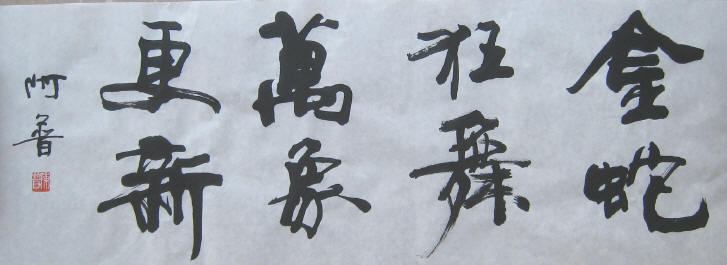 金蛇
狂舞
萬象
更新
阿普